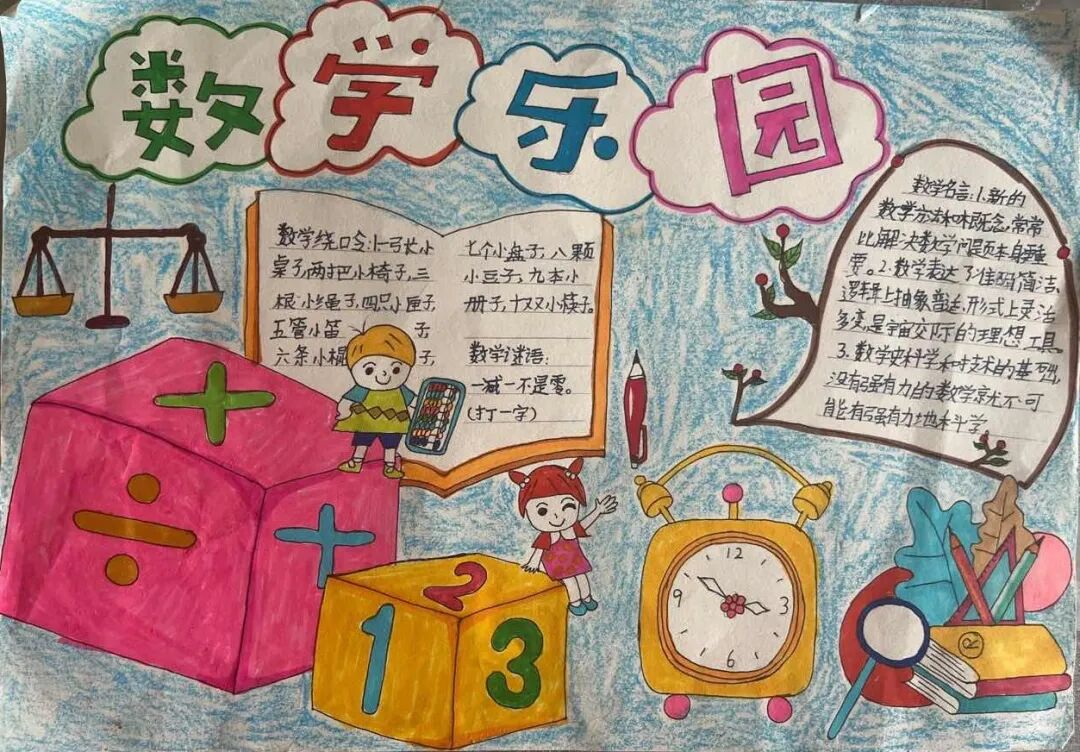 数学乐园
数学绕口令:1一弓长小
桌子,两把小椅子,三
根小绳子,四只小匣子
五管小笛子
六条小棍子,
七个小盘子,八颗
小豆子,九本小
册子,十双小筷子。
数学谜语:
一减一不是零。
(打一字)
数学名言:1.新的
数学方法和概念,常常
比解决数学问题本身重
要。2.数学表达了准确简洁,
逻辑上抽象普适,形式上灵活
多变,是宇宙交际的理想工具
3.数学史科学和技术的基础,
没有强有力的数学就不可
能有强有力地科学
+
÷
+
2
1
3
12
9
3
6
R